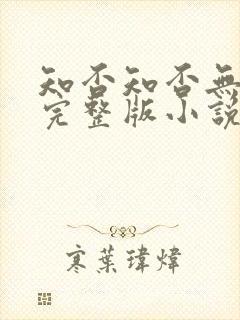 知否知否無
完整版小說
寒葉瑋煒